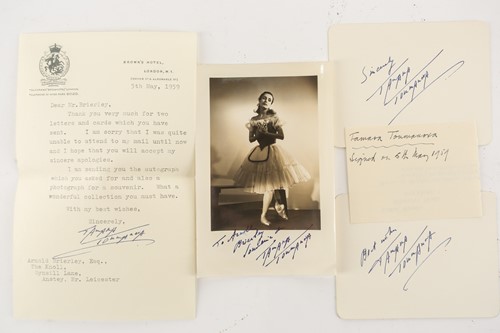 BROWN'S HOTEL,
LONDON, W.1.
5th May, 1959
Dear Mr.Brierley,
Thank you very much for two
letters and cards which you have
sent. I am sorry that I was quite
unable to attend to my mail until now
and I hope that you will accept my
sincere apologies.
I am sending you the autographs
which you asked for and also a
photograph for a souvenir. What a
wonderful collection you must have.
With my best wishes.
Sincerely,
Tamara
Toumanova
Arnold Brierley, Esq.,
The Knoll,
Lane,
Anstey, Nr. Leicester
To Arnold
Brierley
Sincerely
Tamara
Toumanova
Sincerely
Tamara
Toumanova
Tamara Toumanova
Signed on 5th May 1959
Best wishes
Tamara
Toumanova